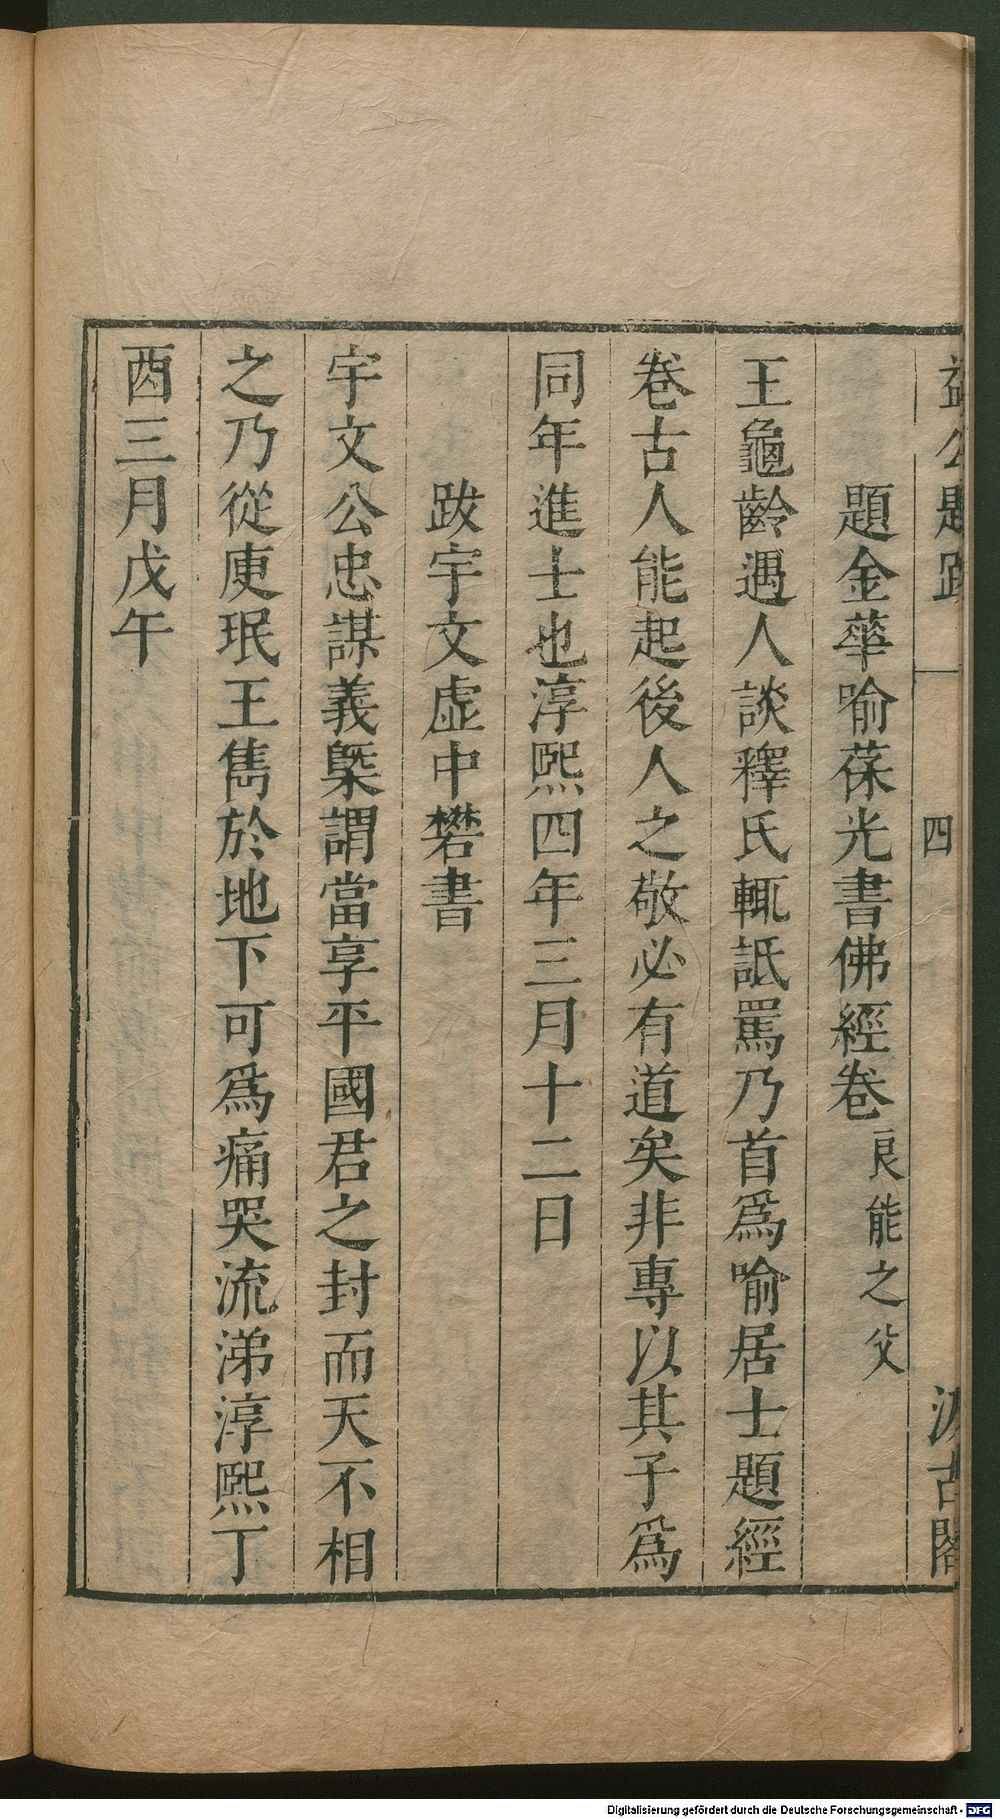 益公題跋 四 汲古閣
題金華喻葆光書佛經卷 良能之父
王龜齡遇人談釋氏輒詆罵乃首爲喻居士題經
卷古人能起後人之敬必有道矣非專以其子爲
同年進士也淳熙四年三月十二日
跋宇文虛中礬書
宇文公忠謀義槩謂當享平國君之封而天不相
之乃從庾珉王雋於地下可爲痛哭流涕淳熙丁
酉三月戊午
Digitalisierung gefördert durch die Deutsche Forschungsgemeinschaft - DFG